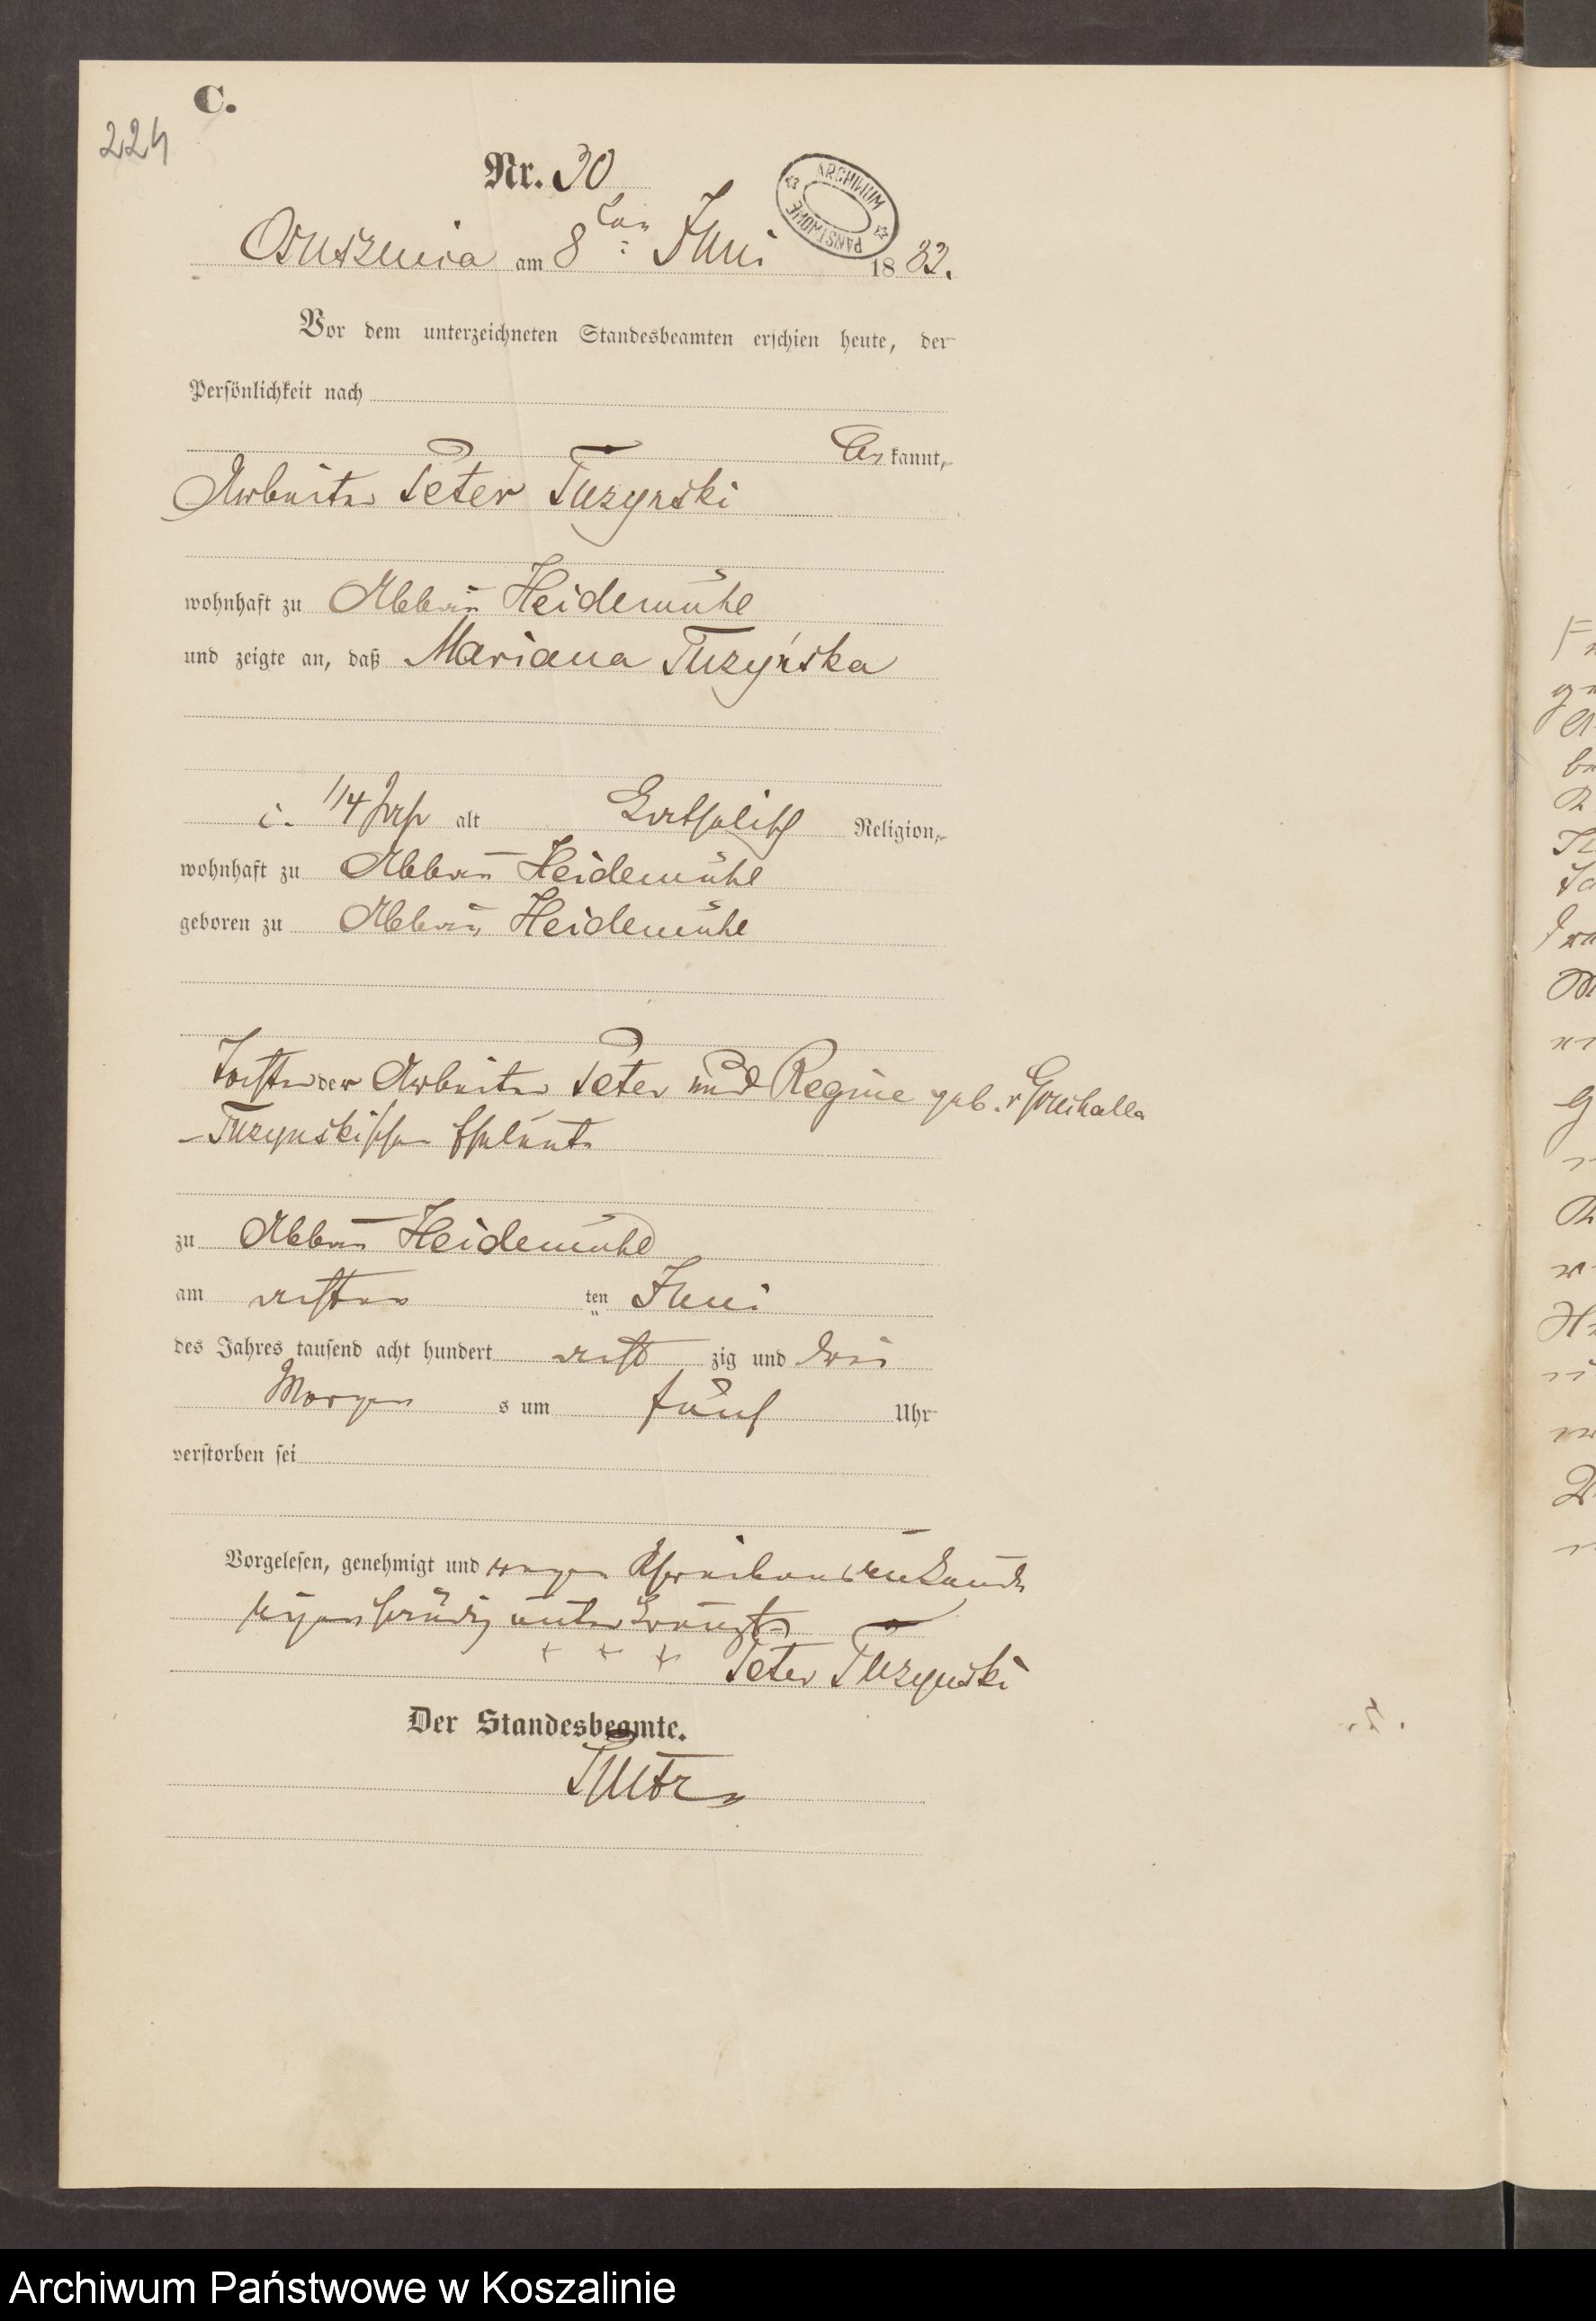 C.
224
Nr. 30
ARCHIWUM PAŃSTWOWE
Osusznica am 8ten Juni 1883.
Vor dem unterzeichneten Standesbeamten erschien heute, der
Persönlichkeit nach
be kannt,
Arbeiter Peter Tuszynski
wohnhaft zu Abbau Heidemühl
und zeigte an, daß Mariana Tuszyńska
1/4 Jahr alt katholisch Religion,
wohnhaft zu Abbau Heidemühl
geboren zu Abbau Heidemühl
Tochter der Arbeiter Peter und Regine geb.
Tuszynskischen Eheleute
zu Abbau Heidemühl
am achten ten Juni
des Jahres tausend acht hundert acht zig und drei
Morgen s um fünf Uhr
verstorben sei
Vorgelesen, genehmigt und wegen Schreibensunkunde
eigenhändig unterkreuzt
+ + + Peter Tuszynski
Der Standesbeamte.
Archiwum Państwowe w Koszalinie